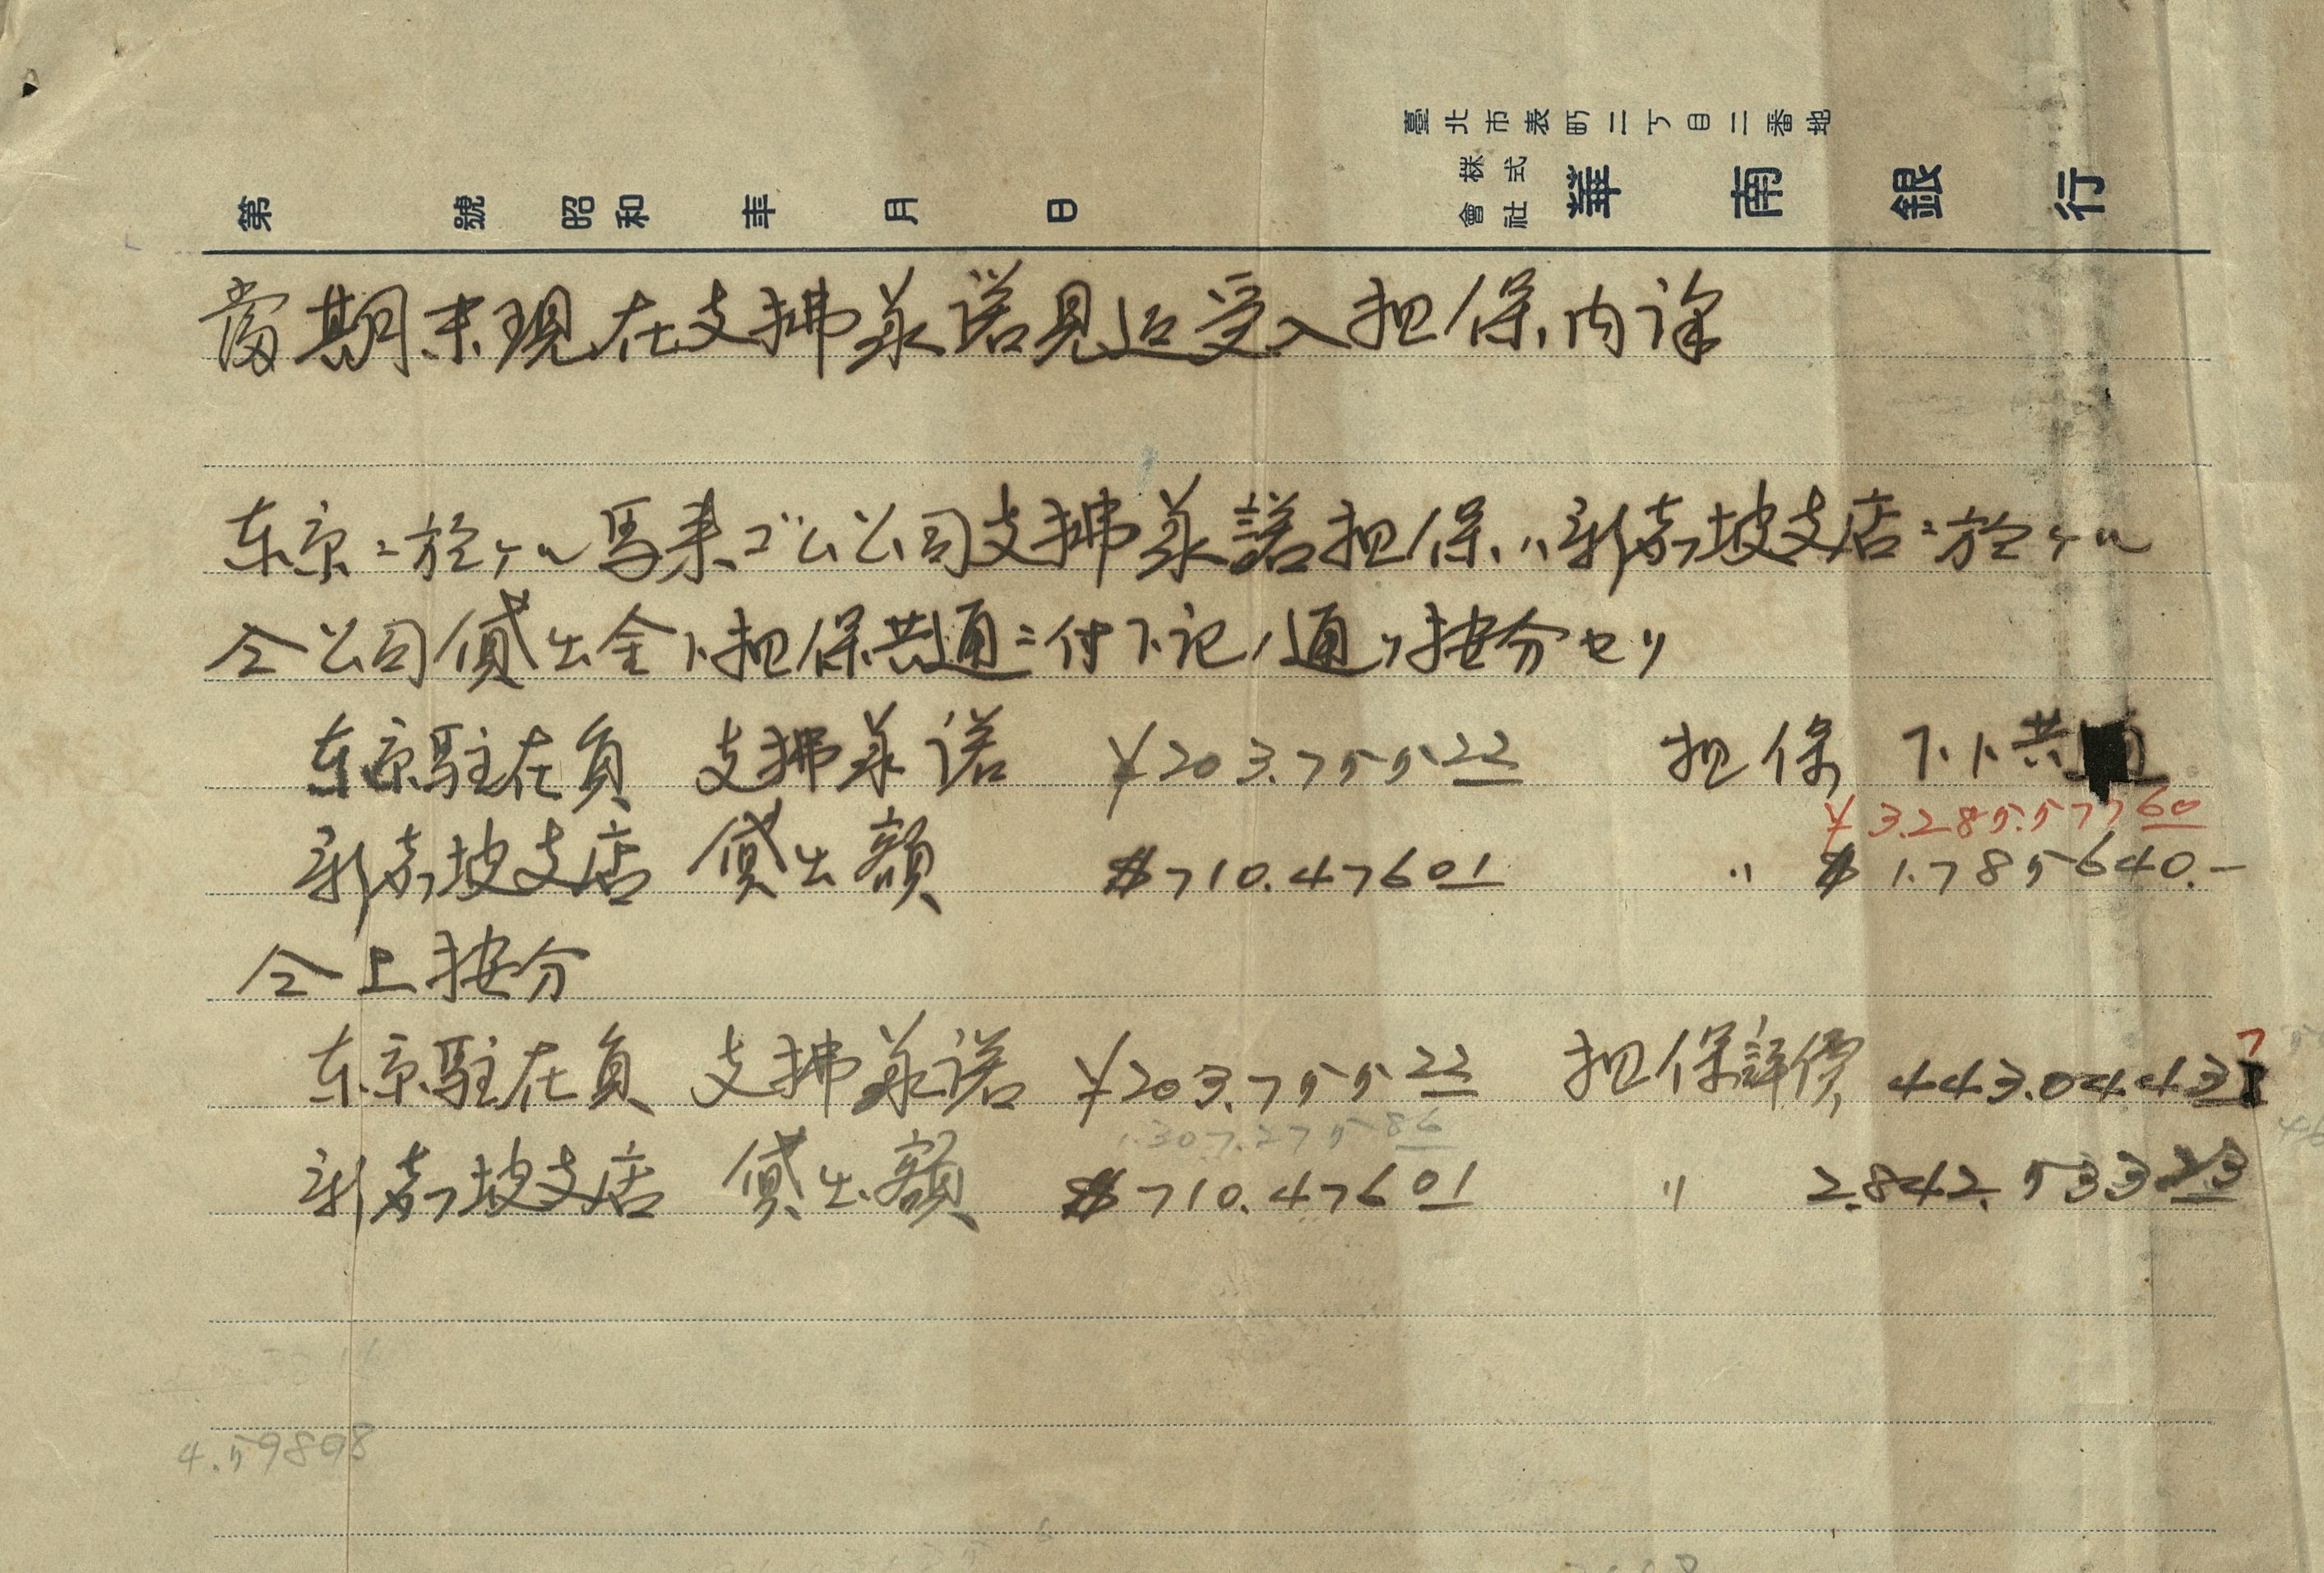 臺北市表町二丁目二番地
株式會社 華南銀行
第 號 昭和 年 月 日
當期末現在支拂承諾見返受入担保内譯
东京ニ於ケル馬来ゴム公司支拂承諾担保ハ新嘉坡支店ニ於ケル
仝公司貸出金ト担保共通ニ付下記ノ通リ按分セリ
东京駐在員 支拂承諾 ¥203.755 22 担保 下ト共通
¥3.285.577 60
新嘉坡支店 貸出額 $710.476 01 〃 $1.785640.-
仝上按分
东京駐在員 支拂承諾 ¥203.755 22 担保評價 443.044 37
1.307.275 86
新嘉坡支店 貸出額 $710.476 01 〃 2.842.533 23
4.59898